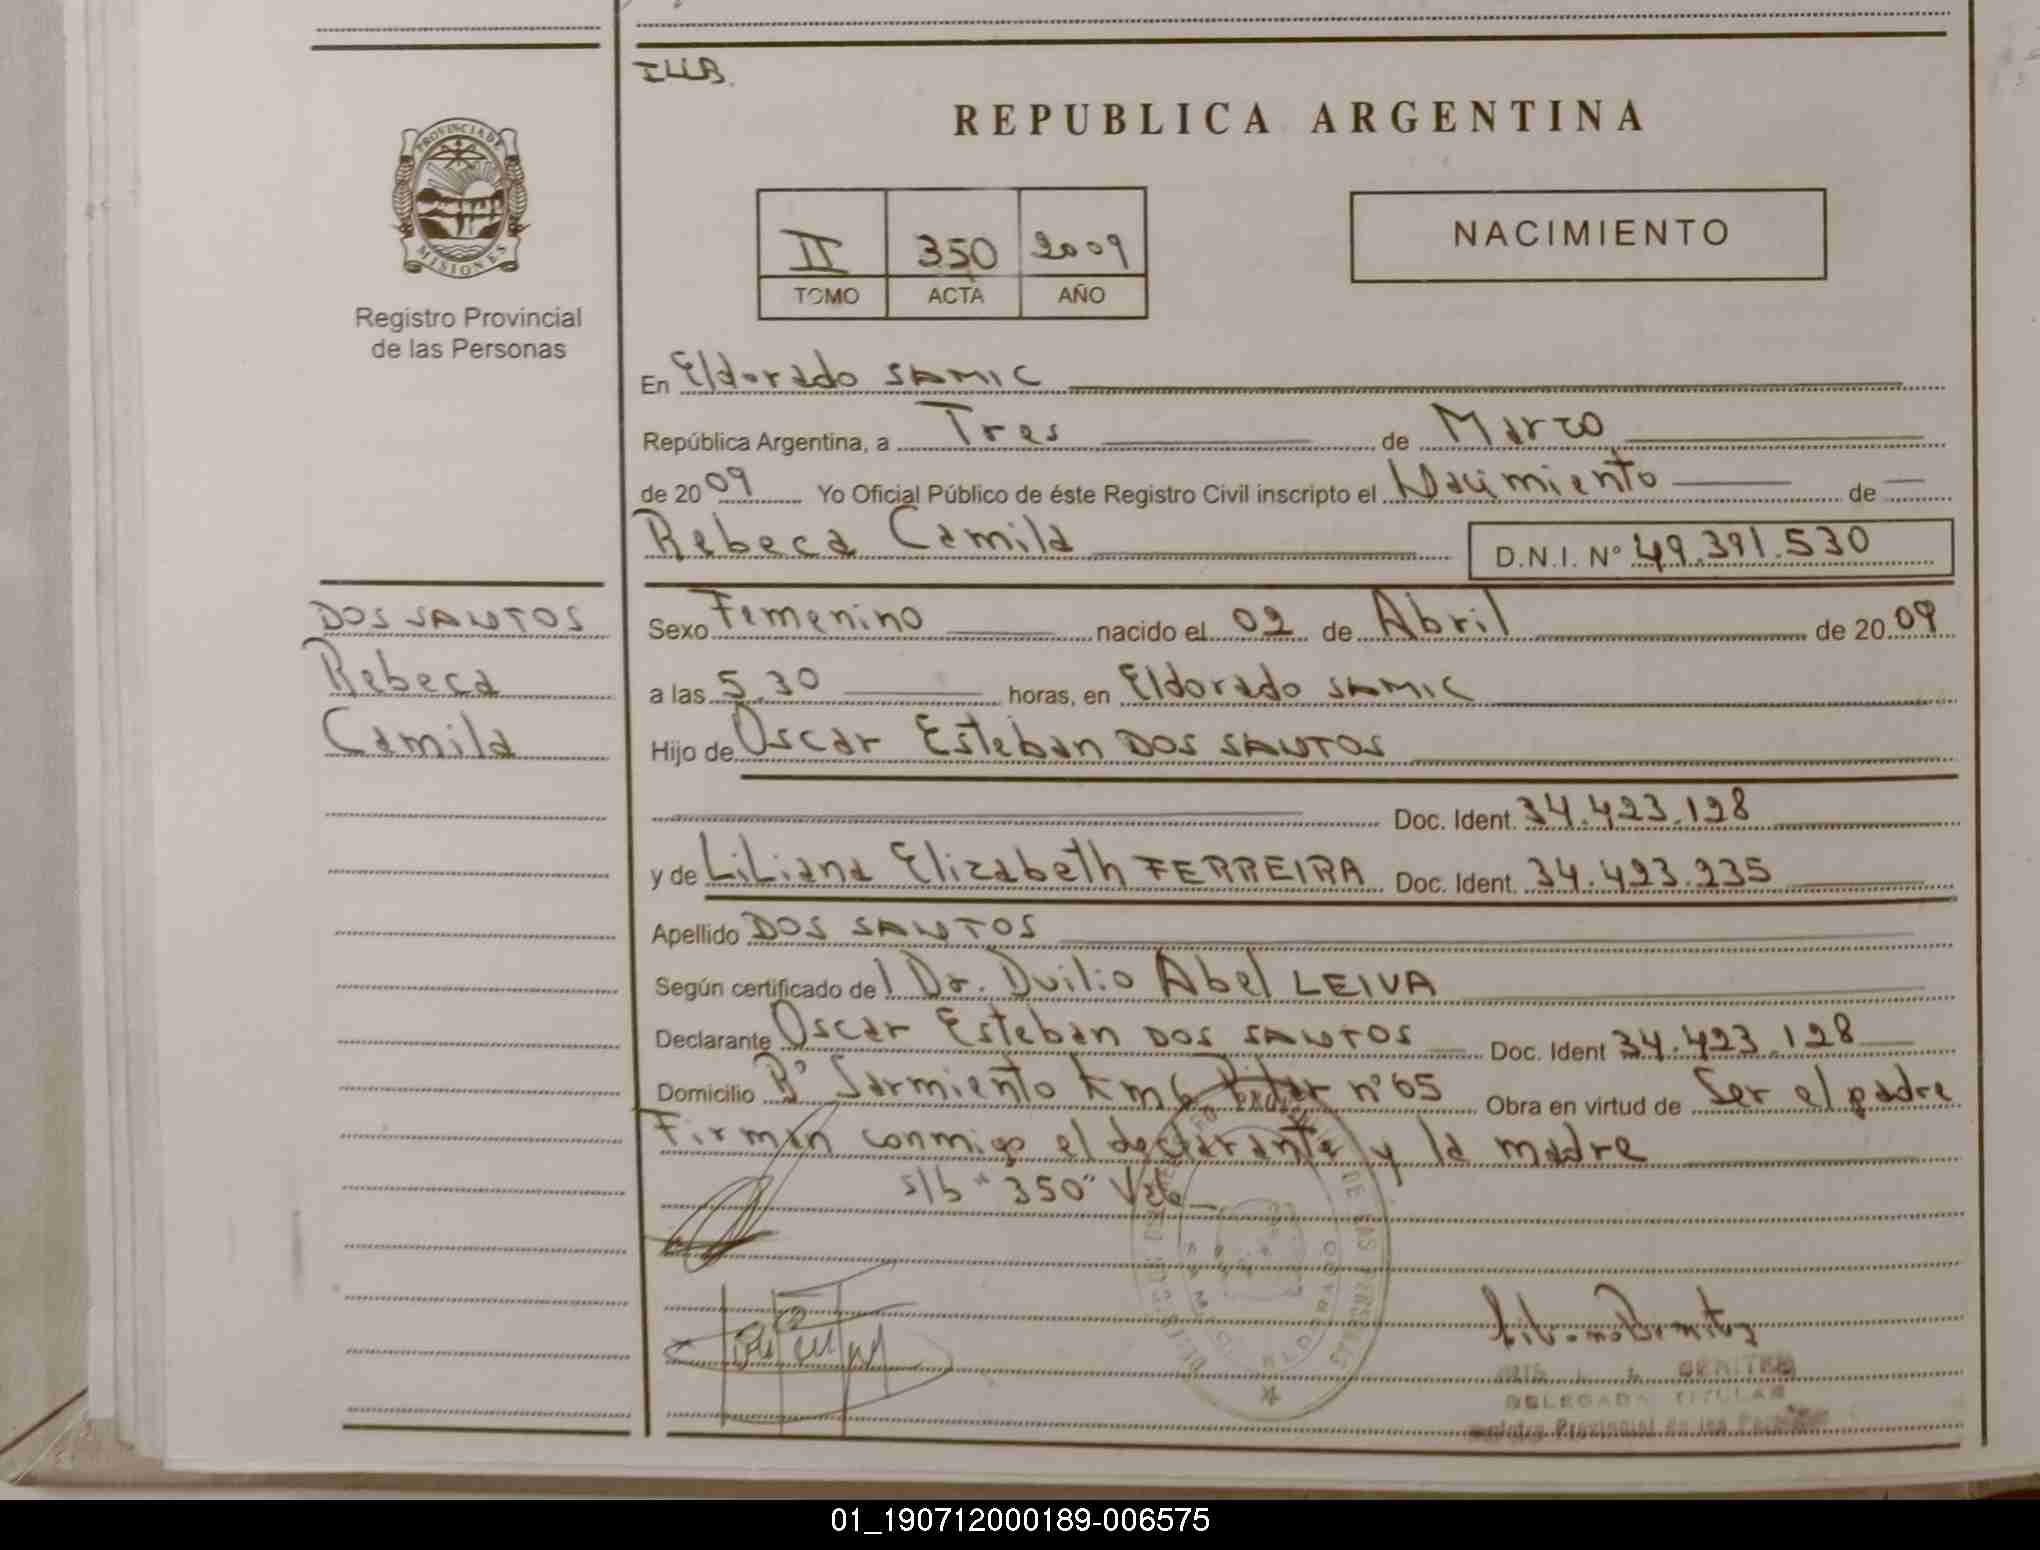 ILLB.
REPUBLICA ARGENTINA
PROVINCIA DE
MISIONES
Registro Provincial
de las Personas
II 350 2009
TOMO ACTA AÑO
NACIMIENTO
En Eldorado SAMIC
República Argentina, a Tres de Marzo
de 2009 Yo Oficial Público de éste Registro Civil inscripto el Nacimiento de
Rebeca Camila D.N.I. Nº 49.391.530
DOS SANTOS
Rebeca
Camila
Sexo Femenino nacido el 02 de Abril de 2009
a las 5.30 horas, en Eldorado SAMIC
Hijo de Oscar Esteban DOS SANTOS
Doc. Ident. 34.423.128
y de Liliana Elizabeth FERREIRA Doc. Ident. 34.423.235
Apellido DOS SANTOS
Según certificado de l Dr. Duilio Abel LEIVA
Declarante Oscar Esteban DOS SANTOS Doc. Ident 34.423.128
Domicilio Bº Sarmiento Km 6 nº 65 Obra en virtud de Ser el padre
Firman conmigo el declarante y la madre
s/b "350" Vale
DE LAS PERSONAS
ELDORADO
BENITEZ
DELEGADA TITULAR
Registro Provincial de las Personas
01_190712000189-006575